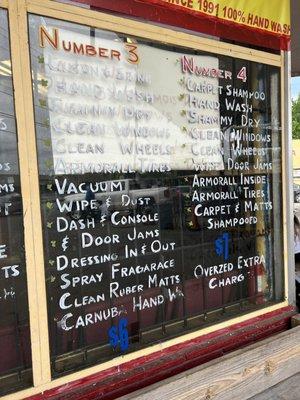 SINCE 1991 100% HAND W
NUMBER 3
HAND WASH
SHAMMY DRY
CLEAN WINDOWS
CLEAN WHEELS
ARMORALL TIRES
VACUUM
WIPE & DUST
DASH & CONSOLE
& DOOR JAMS
DRESSING IN & OUT
SPRAY FRAGARACE
CLEAN RUBER MATTS
CARNUB HAND WA
$6
NUMBER 4
CARPET SHAMPOO
HAND WASH
SHAMMY DRY
CLEAN WINDOWS
CLEAN WHEELS
DUST DOOR JAMS
ARMORALL INSIDE
ARMORALL TIRES
CARPET & MATTS
SHAMPOOED
OVERZED EXTRA
CHARG